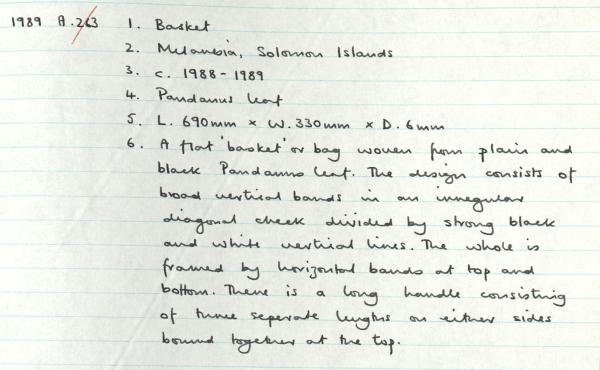 1989 A.263 1. Basket
2. Melanesia, Solomon Islands
3. c. 1988-1989
4. Pandanus leaf
5. L. 690mm × W. 330mm × D. 6mm
6. A flat 'basket' or bag woven from plain and
black Pandanus leaf. The design consists of
broad vertical bands in an irregular
diagonal check divided by strong black
and white vertical lines. The whole is
framed by horizontal bands at top and
bottom. There is a long handle consisting
of three seperate lengths on either sides
bound together at the top.